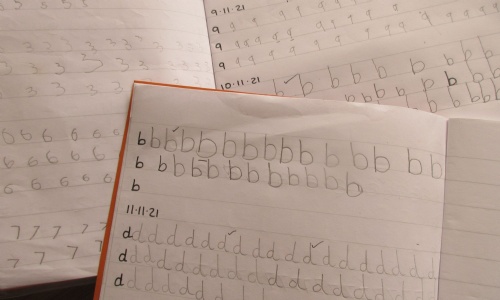 3 3 3 3
3 3 3 3 3 3 3
3 3 3 3 3 3
3 3 3 3 3
6 6 6 6 6 6 6
6 6 6 6 6 6
6 6 6 6 6 6
7 7 7 7 7 7
7 7 7 7 7
9.11.21
9 9 9 9 9 9 9 9 9
9 9 9 9 9 9 9 9 9
9
10.11.21
b b b b b b b
b b b b b b b b
b b b b b b b b b b b b b b b b
b b b b b b b b b b b b b
b
11.11.21
d d d d d d d d d d d d d d d d d d d
d d d d d d d d d d d d d d d d d d
d d d d d d d d d d d d d d d d d d